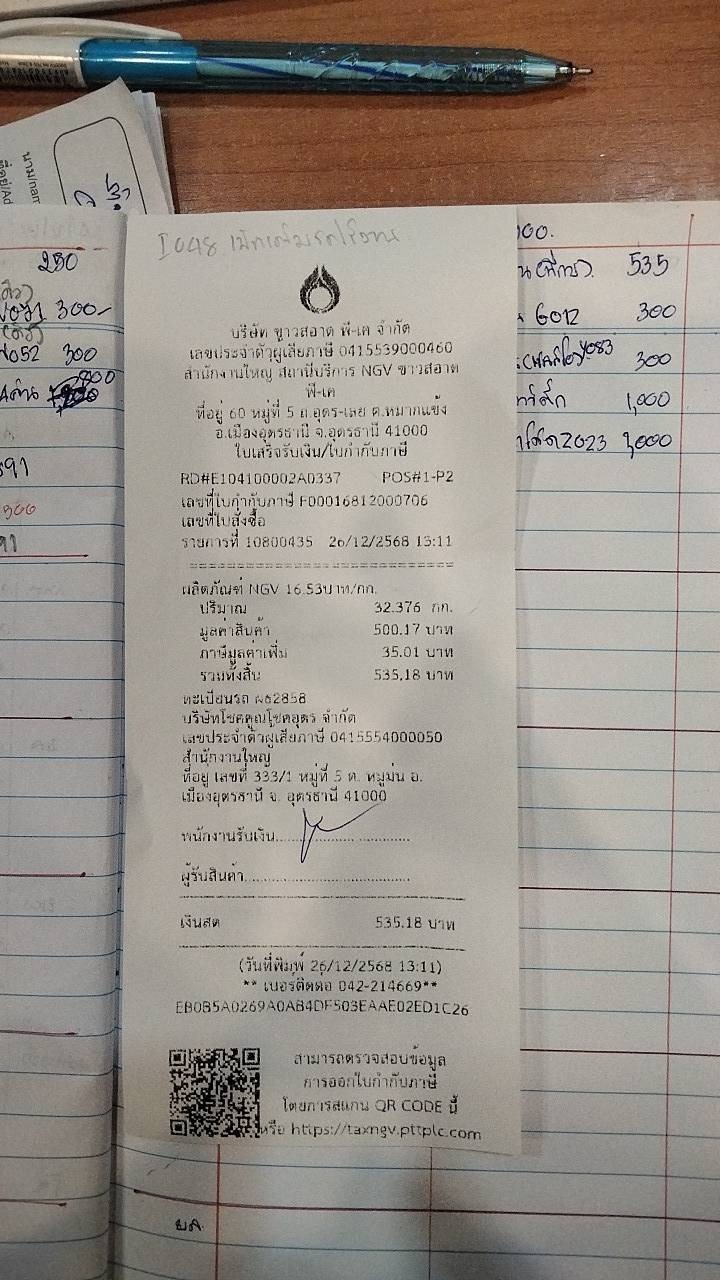 นาม/nam
ที่อยู่/Ad
280
300-
052 300
800
591
300
91
I048
บริษัท ขาวสอาด พี-เค จำกัด
เลขประจำตัวผู้เสียภาษี 0415539000460
สำนักงานใหญ่ สถานีบริการ NGV ขาวสอาด
พี-เค
ที่อยู่ 60 หมู่ที่ 5 ถ.อุดร-เลย ต.หมากแข้ง
อ.เมืองอุดรธานี จ.อุดรธานี 41000
ใบเสร็จรับเงิน/ใบกำกับภาษี
RD#E104100002A0337 POS#1-P2
เลขที่ใบกำกับภาษี F00016812000706
เลขที่ใบสั่งซื้อ
รายการที่ 10800435 26/12/2568 13:11
==============================
ผลิตภัณฑ์ NGV 16.53บาท/กก.
ปริมาณ 32.376 กก.
มูลค่าสินค้า 500.17 บาท
ภาษีมูลค่าเพิ่ม 35.01 บาท
รวมทั้งสิ้น 535.18 บาท
ทะเบียนรถ ผอ2858
บริษัทโชคคูณโชคอุดร จำกัด
เลขประจำตัวผู้เสียภาษี 0415554000050
สำนักงานใหญ่
ที่อยู่ เลขที่ 333/1 หมู่ที่ 5 ต. หมูม่น อ.
เมืองอุดรธานี จ. อุดรธานี 41000
พนักงานรับเงิน..................................
ผู้รับสินค้า..........................................
เงินสด 535.18 บาท
(วันที่พิมพ์ 26/12/2568 13:11)
** เบอร์ติดต่อ 042-214669**
EB0B5A0269A0AB4DF503EAAE02ED1C26
สามารถตรวจสอบข้อมูล
การออกใบกำกับภาษี
โดยการสแกน QR CODE นี้
หรือ https://taxngv.pttplc.com
00.
535
6012 300
4083 300
1,000
2023 3,000
ย.ค.